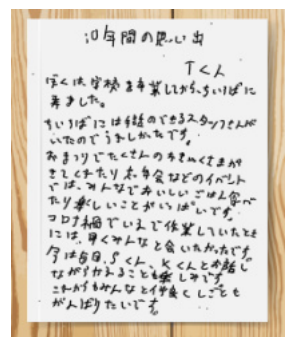 10年間の思い出
Tくん
ぼくは、学校を卒業してから、ちいろばに
来ました。
ちいろばには手話のできるスタッフさんが
いたのでうれしかたです。
おまつりでたくさんのお客さんが
きてくれたり、忘年会などのイベント
では、みんなでおいしいごはんを食べ
たり楽しいことがいっぱいです。
コロナ禍でいえで作業していたとき
には、早くみんなと会いたかったです
今は毎日、Sくん、Kくんとお話し
ながらかえることも楽しみです
これからもみんなと仲良くしごとも
がんばりたいです。